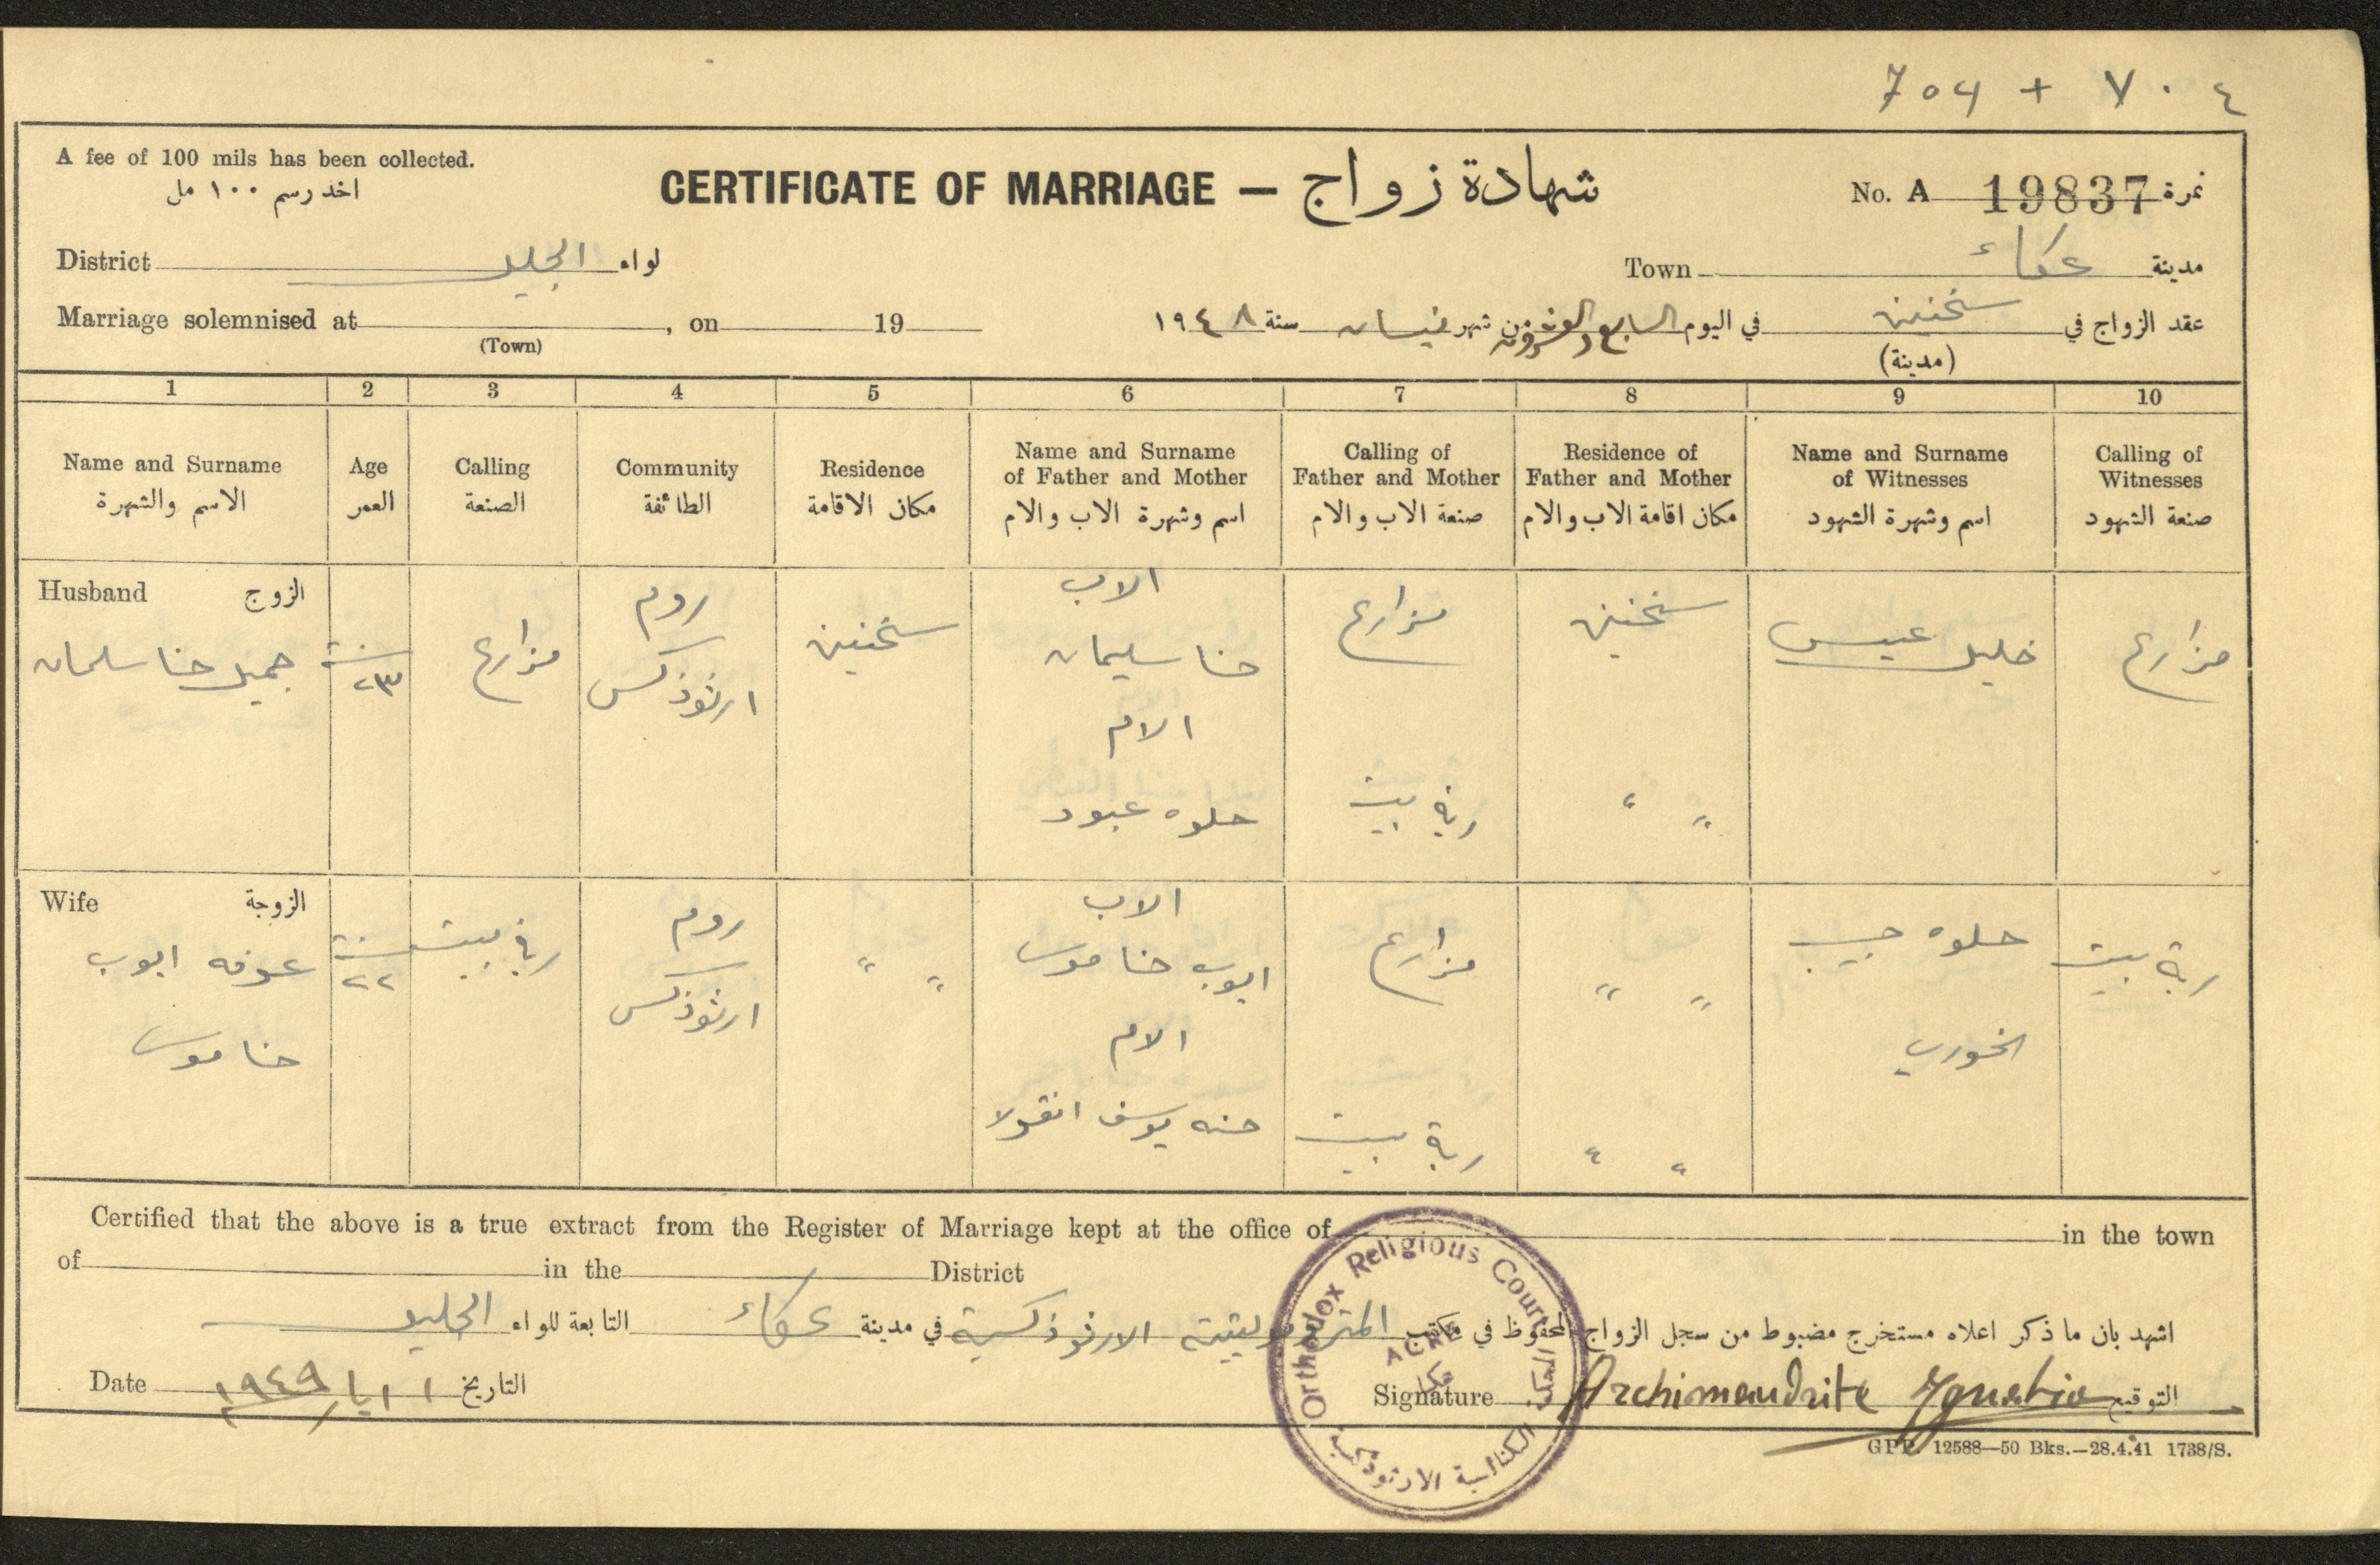 704 + ٧٠٤
A fee of 100 mils has been collected.
اخذ رسم ١٠٠ مل
CERTIFICATE OF MARRIAGE — شهادة زواج
No. A 19837 نمرة
District الجليل لواء
Town عكاء مدينة
Marriage solemnised at , on 19
(Town)
عقد الزواج في سخنين في اليوم السابع والعشرون من شهر نيسان سنة ١٩٤٨
(مدينة)
1 2 3 4 5 6 7 8 9 10
Name and Surname
الاسم والشهرة
Age
العمر
Calling
الصنعة
Community
الطائفة
Residence
مكان الاقامة
Name and Surname
of Father and Mother
اسم وشهرة الاب والام
Calling of
Father and Mother
صنعة الاب والام
Residence of
Father and Mother
مكان اقامة الاب والام
Name and Surname
of Witnesses
اسم وشهرة الشهود
Calling of
Witnesses
صنعة الشهود
Husband الزوج
جميل حنا سلمان
٢٣ سنة
مزارع
روم
ارثوذكس
سخنين
الاب
حنا سليمان
الام
حلوه عبود
مزارع
ربة بيت
سخنين
" "
خليل عيسى
مزارع
Wife الزوجة
ايوب
حنا موسى
٢٢ سنة
ربة بيت
روم
ارثوذكس
" "
الاب
ايوب حنا موسى
الام
حنه يوسف انقولا
مزارع
ربة بيت
" "
" "
حلوه حبيب
الخوري
ربة بيت
Certified that the above is a true extract from the Register of Marriage kept at the office of in the town
of in the District
اشهد بان ما ذكر اعلاه مستخرج مضبوط من سجل الزواج المحفوظ في مكتب المتروبوليتية الارثوذكسية في مدينة عكاء التابعة للواء الجليل
Date ١ ايار ١٩٤٩ التاريخ
Signature Archimandrite Ignatio التوقيع
Orthodox Religious Court
ACRE
عكا
المحكمة الكنائسية الارثوذكسية
GPP. 12588—50 Bks.—28.4.41 1738/S.